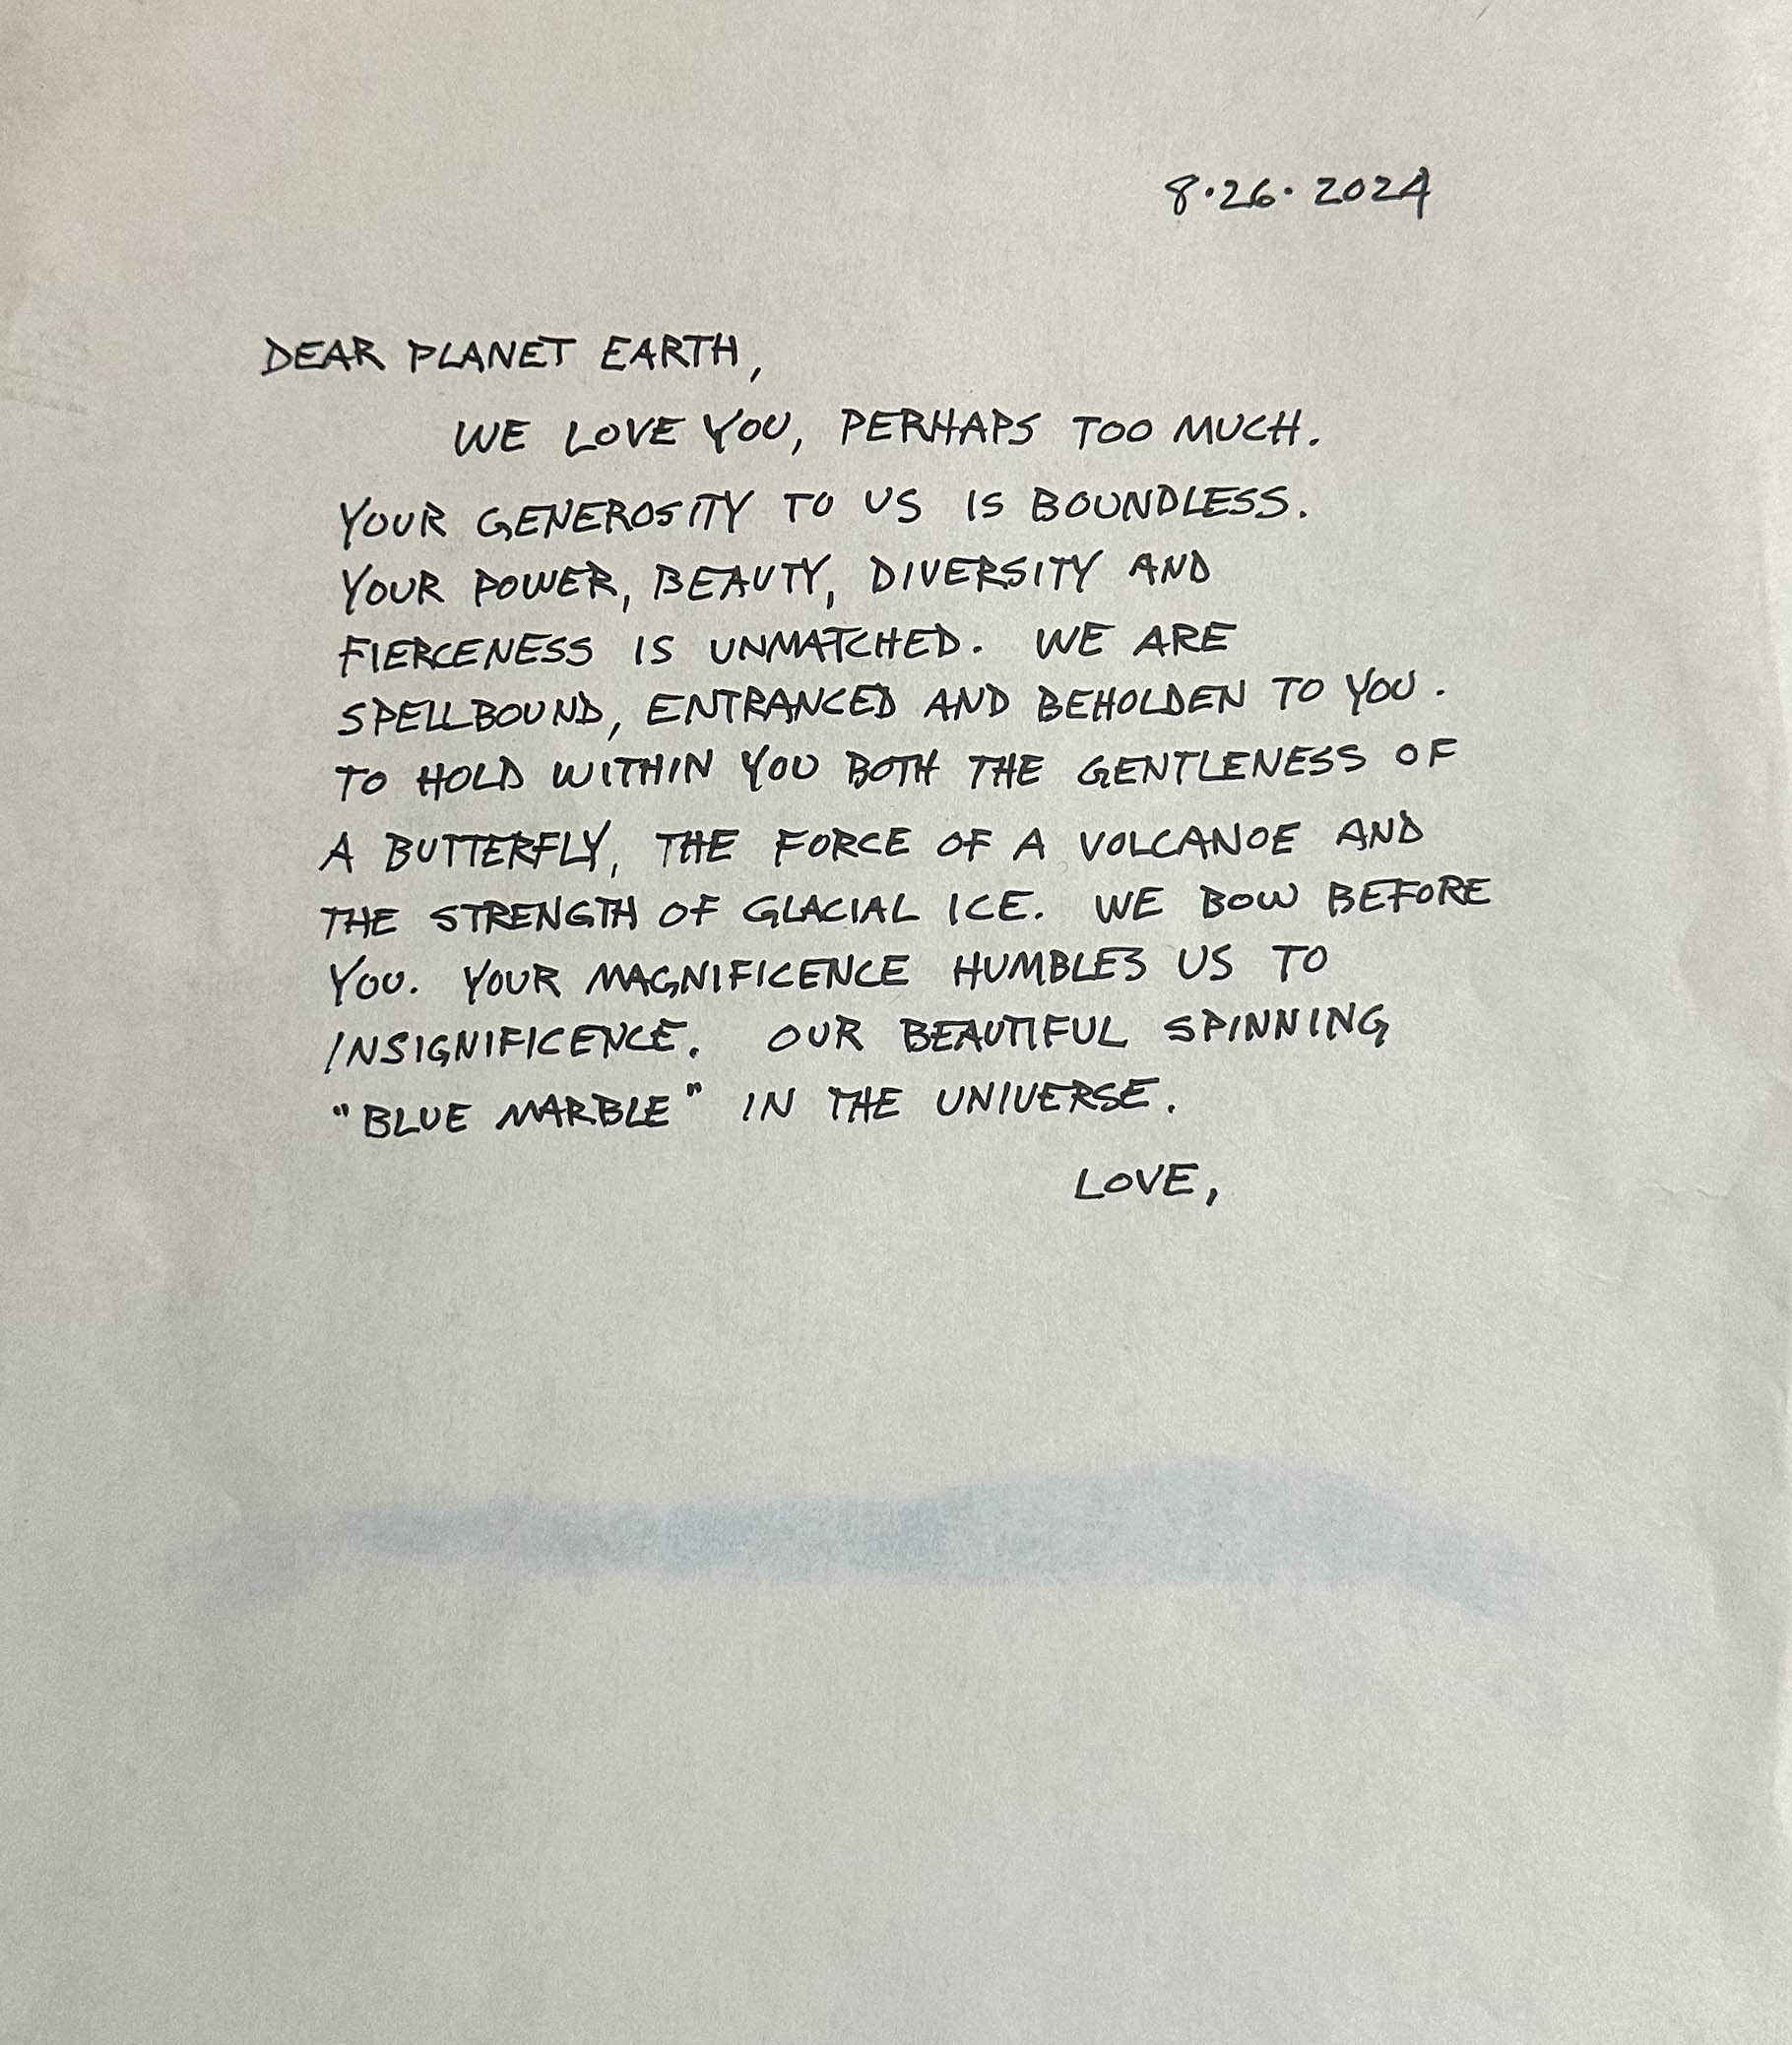 8·26·2024
DEAR PLANET EARTH,
WE LOVE YOU, PERHAPS TOO MUCH.
YOUR GENEROSITY TO US IS BOUNDLESS.
YOUR POWER, BEAUTY, DIVERSITY AND
FIERCENESS IS UNMATCHED. WE ARE
SPELLBOUND, ENTRANCED AND BEHOLDEN TO YOU.
TO HOLD WITHIN YOU BOTH THE GENTLENESS OF
A BUTTERFLY, THE FORCE OF A VOLCANOE AND
THE STRENGTH OF GLACIAL ICE. WE BOW BEFORE
YOU. YOUR MAGNIFICENCE HUMBLES US TO
INSIGNIFICENCE. OUR BEAUTIFUL SPINNING
"BLUE MARBLE" IN THE UNIVERSE.
LOVE,